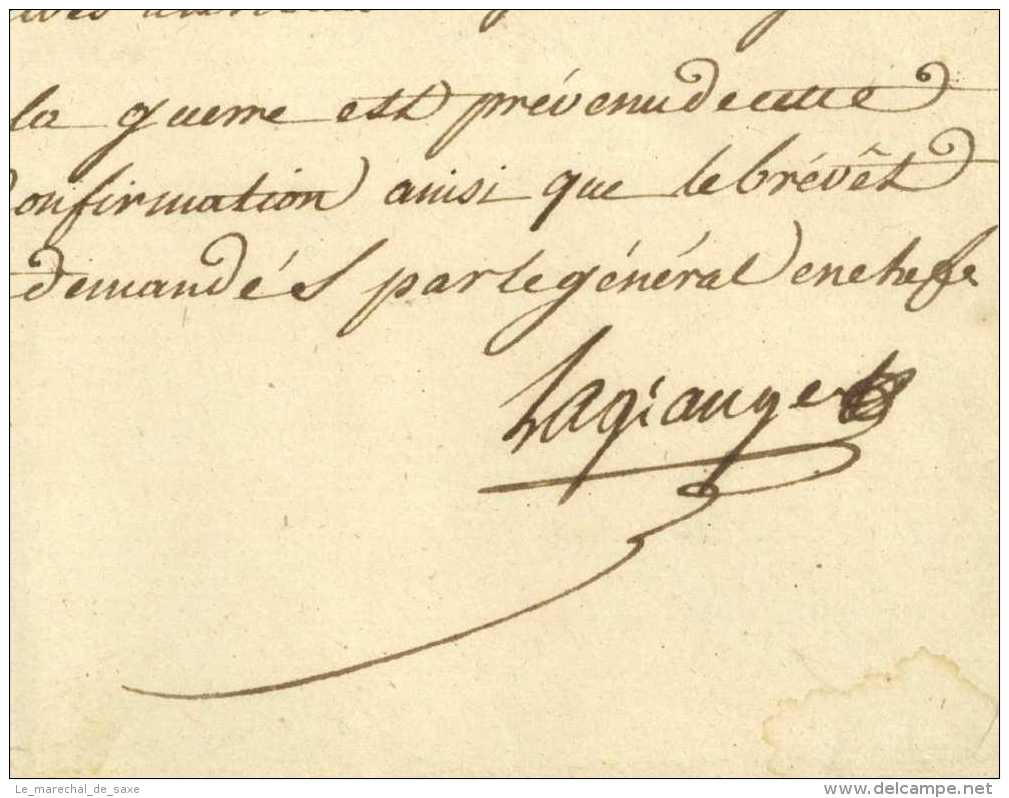 la guerre est prévenu de cette
onfirmation ainsi que le brévêt
demandés par le général en chef
Lagrange
Le_marechal_de_saxe
delcampe.net